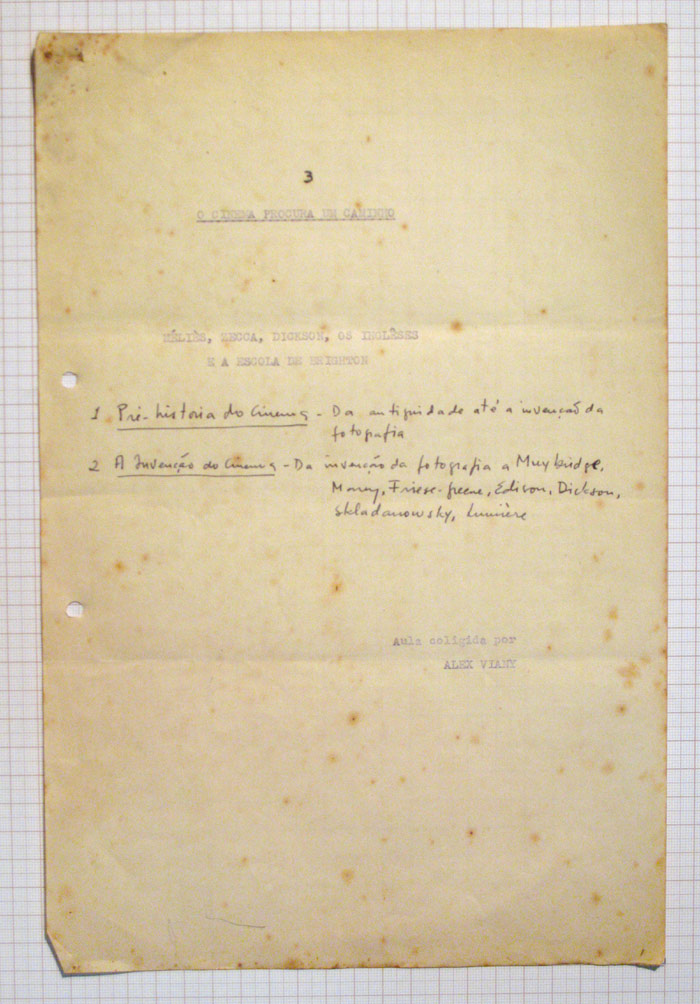 3
O CINEMA PROCURA UM CAMINHO
MÉLIÈS, ZECCA, DICKSON, OS INGLÊSES
E A ESCOLA DE BRIGHTON
1 Pré-história do Cinema - Da antiguidade até a invenção da
fotografia
2 A Invenção do Cinema - Da invenção da fotografia a Muybridge,
Marey, Friese-greene, Edison, Dickson,
Skladanowsky, Lumière
Aula coligida por
ALEX VIANY